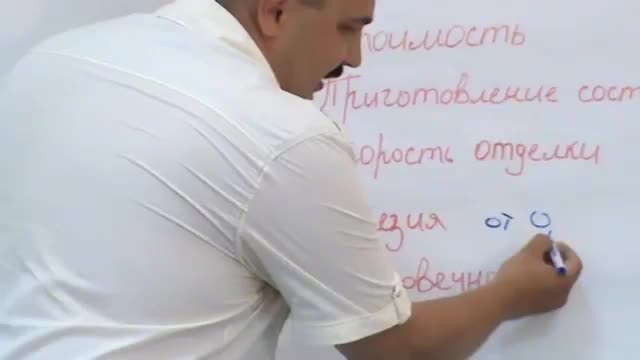 тоимость
Приготовление сост
орость отделки
езия от 0,
овечн